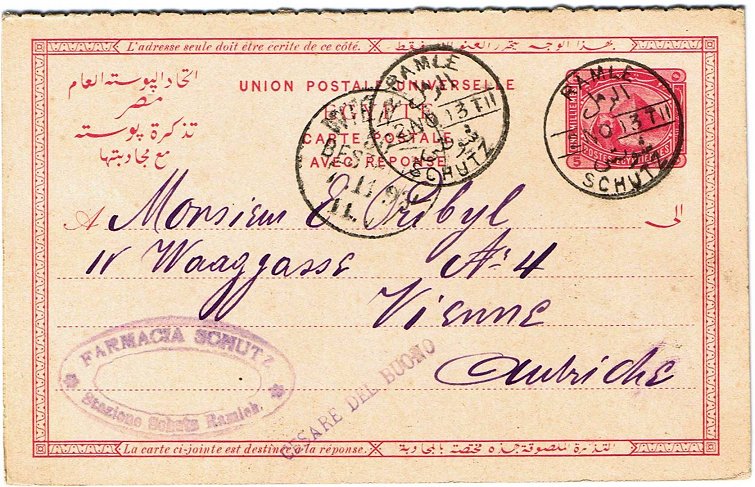 L'adresse seule doit être écrite de ce côté.
بهذا الوجه يتحرر العنوان فقط
اتحاد البوسته العام
مصر
تذكرة بوسته
مع مجاوبتها
UNION POSTALE UNIVERSELLE
CARTE POSTALE
AVEC RÉPONSE
RAMLE
الرمل
13 T II
SCHUTZ
RAMLE
الرمل
13 T II
SCHUTZ
WIEN
BEST
11
A Monsieur E Pribyl
الى
IV Waaggasse No 4
Vienne
Autriche
FARMACIA SCHUTZ
Stazione Schutz Ramleh.
CESARE DEL BUONO
La carte ci-jointe est destinée à la réponse.
التذكرة الملصوقة بهذه مختصة بالمجاوبة